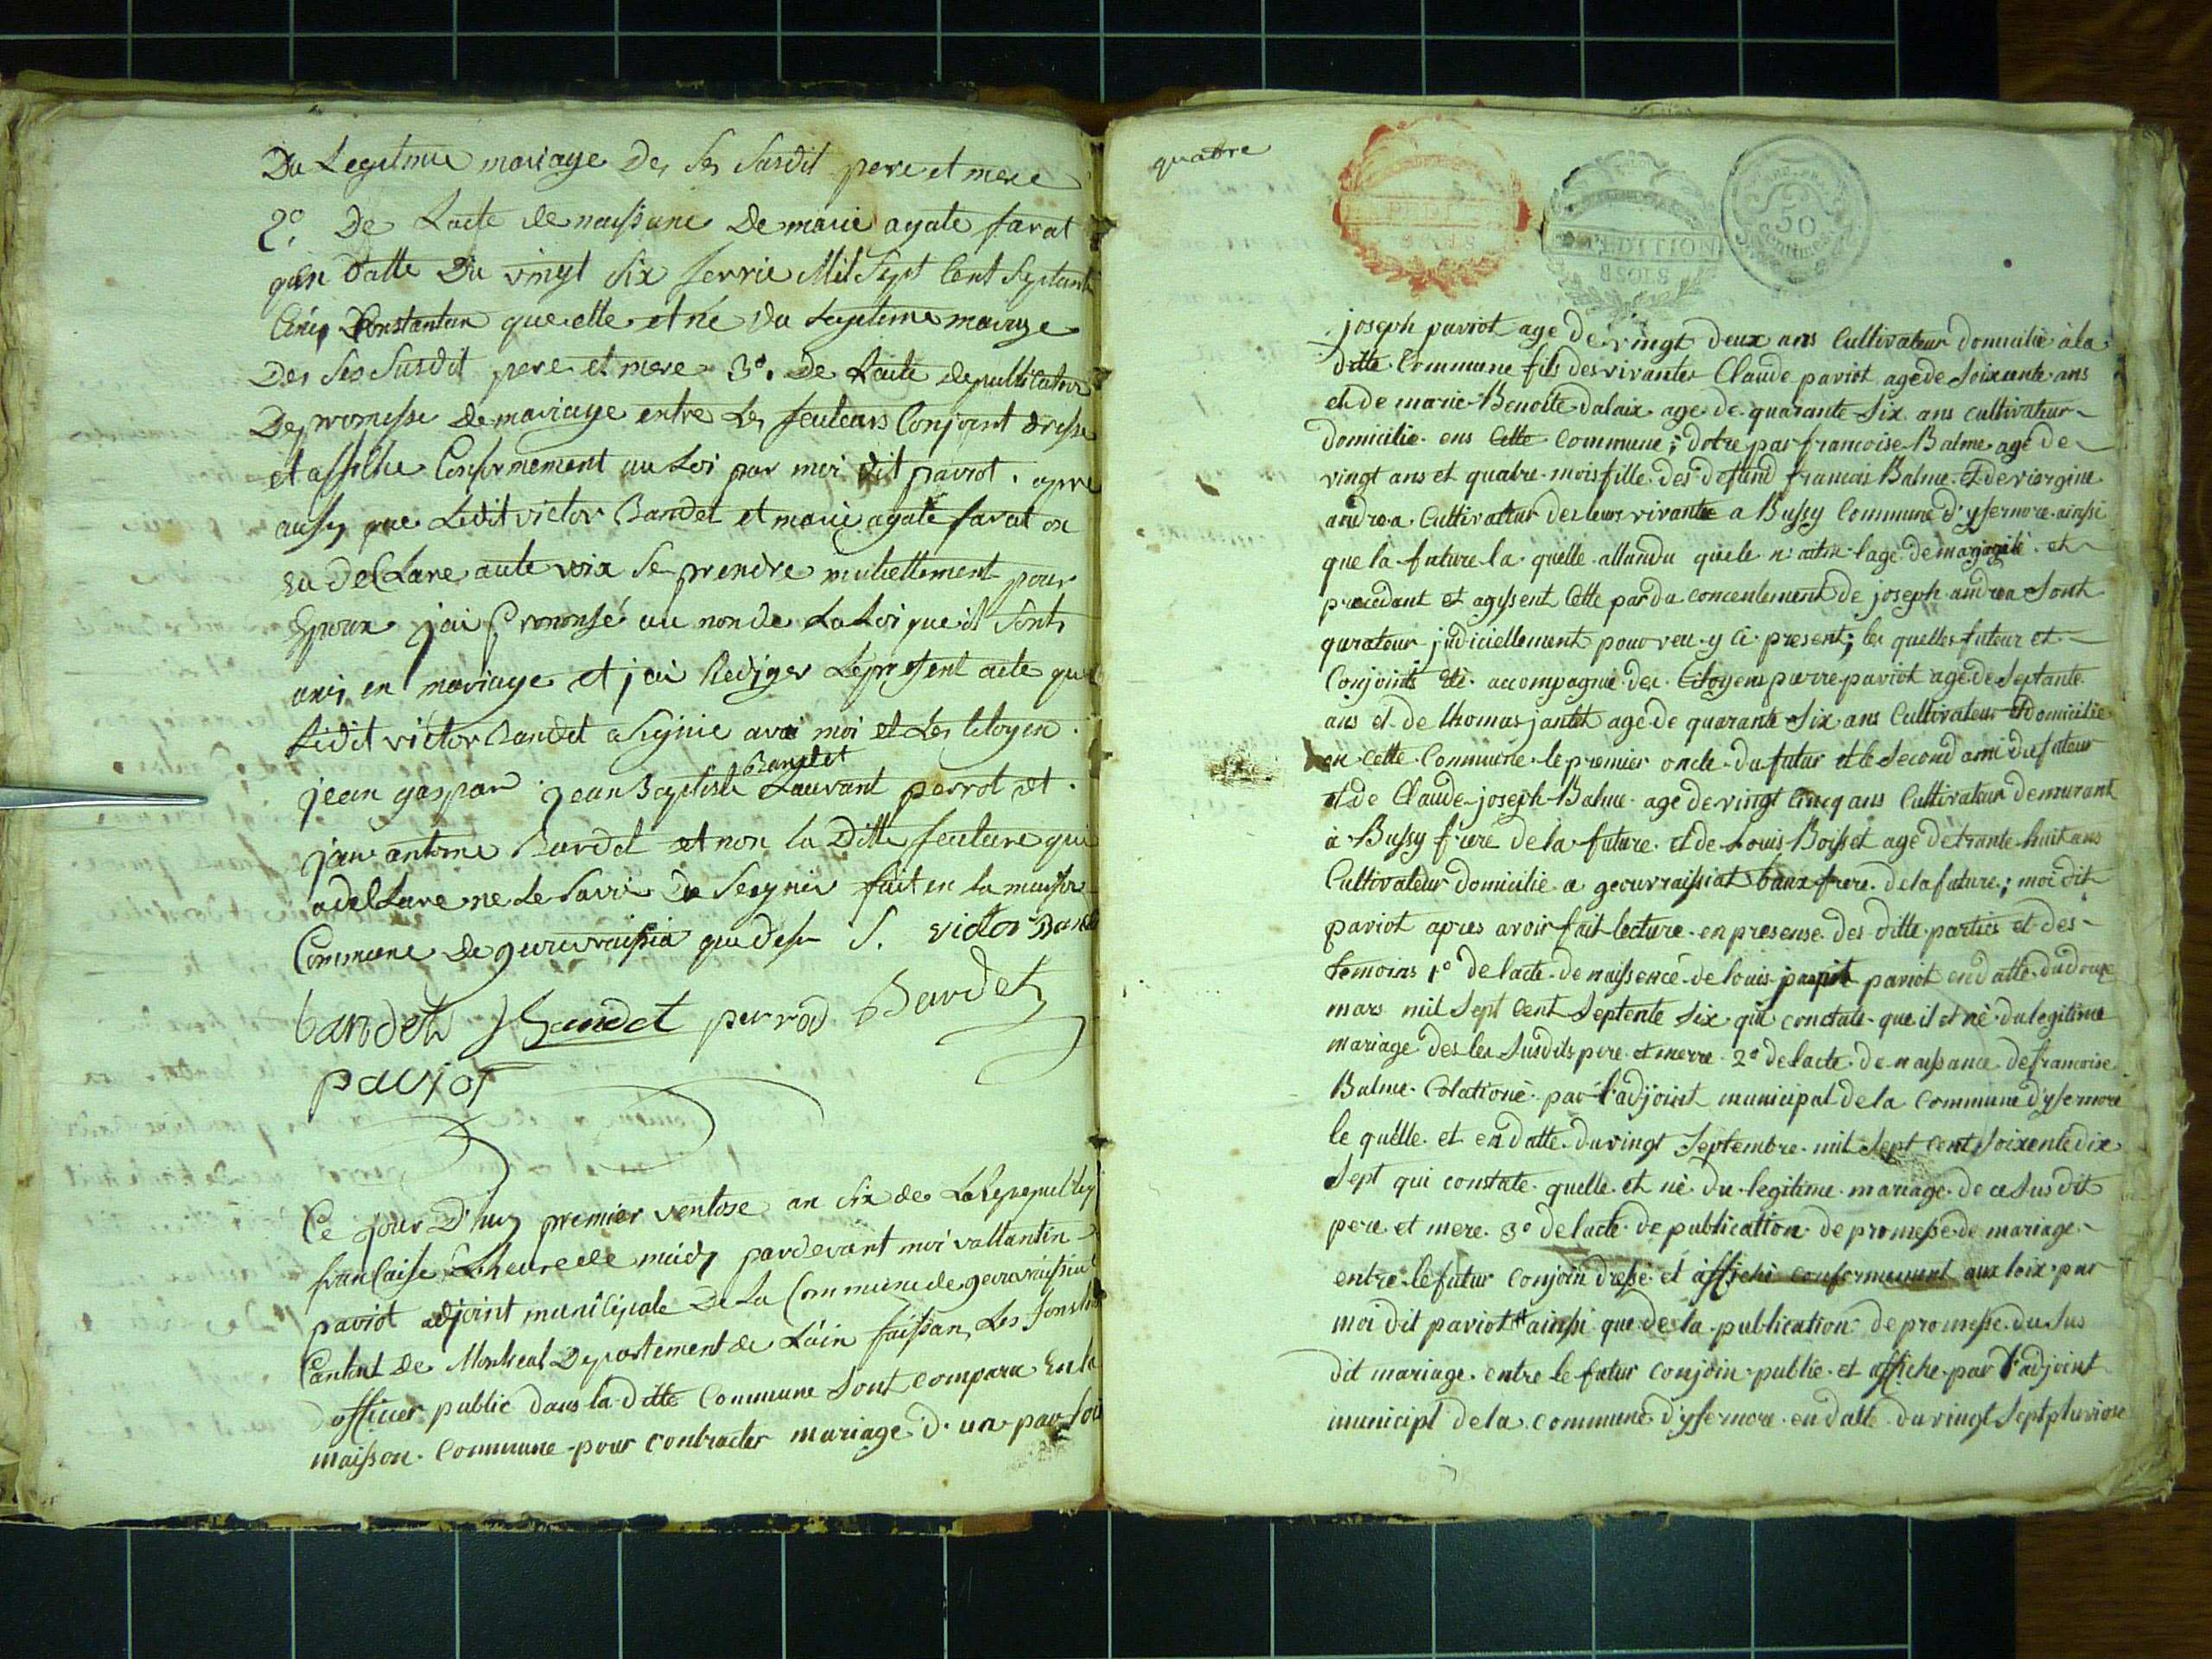 Du Legitime mariage Des Ses Susdit pere et mere
2º. De Lacte de naissance De marie agate favat
en datte Du vingt six fevrie Mil Sept Cent Septante
Cinq Constantan que elle et né Du Legitime mariage
Des Ses Susdit pere et mere 3º. De Lacte de publication
De promesse De mariage entre Les feuteurs Conjoint dresse
et affiche Conformement au Loi par moi dit paviot . apre
aussy que Ledit victor Bandet et marie agate favat on
eu deClare aute voix Se prendre mutuellement pour
Epoux jai prononsé au non de La Loi que il Sont
unis en mariage et jai Rediger Le present acte que
Ledit victor Bandet a Signie avec moi et Les Citoyen .
Bandet
jean gaspar jean Baptiste Lauvant perrot et .
jean antoine Bardet et non la Ditte feuteure qui
a deClare ne Le Savoir De Seignier fait en la maison
Commune De geovraissia que desu S. victor Bandet
bandet JBandet perrod Bardet
paviot
Ce jour D'huy premier ventose an Six de La Republiq
francaise Lheure de midy pardevant moi vallantin
paviot adjoint municipale De La Commune de geovraissiat
Canton de Montreal Departement de Lain faissan Les fonction
d officier public dans la ditte Commune Sont compara En la
maisson Commune pour contracter mariage d'une part Louis
quatre
EXPEDITION
8 SOLS
50
Centimes
joseph paviot age de vingt deux ans Cultivateur domicilié à la
ditte Commune fils des vivantes Claude paviot age de Soixante ans
et de marie Benoite dalaix age de quarante Six ans cultivateur
domicilie ens Cette Commune ; dotre par francoise Balme agé de
vingt ans et quatre mois fille des defund francois Balme et de viergine
andrea Cultivatur de leurs vivante a Bussy Commune d'ysernore ainsi
que la future la quelle attandu quele n'aitin lage de majorité et
procedant et agissent Cette par du concentement de joseph andrea Sont
qurateur judiciellement pourveu y ci present ; les quelles futeur et
Conjoints été accompagnié des Citoyens pierre paviot agé de Septante
ans et de thomas jantet age de quarante Six ans Cultivateur et domicilie
en cette Commune le premier oncle du futur et le Second ami du futeur
et de Claude joseph Balme age de vingt Cincq ans Cultivateur demurant
à Bussy frere de la future et de Louis Boisset agé de trante huit ans
Cultivateur domicilie a geouvraissiat baux frere de la future ; moi dit
paviot apres avoir fait lecture en presense des ditte parties et des
temoins 1º de lacte de naissence de louis paviot en datte du douze
mars mil Sept Cent Septente Six qui conctate que il et né du legitime
mariage des les Susdits pere et merre 2º de lacte de naissance de francoise
Balme Colationé par l'adjoint municipal de la Commune d'ysernore
le quelle et en datte du vingt Septembre mil Sept Cent Soixente dix
Sept qui constate quelle et né du legitime mariage de ce Susdit
pere et mere 3º de lacte de publication de promesse de mariage
entre le futur conjoin dressé et affiché conformement aux loix par
moi dit paviot ainssi que de la publication de promesse du Sus
dit mariage entre le futur conjoin publie et affiche par l'adjoint
municipl de la commune d'ysernore en datte du vingt Sept pluviose